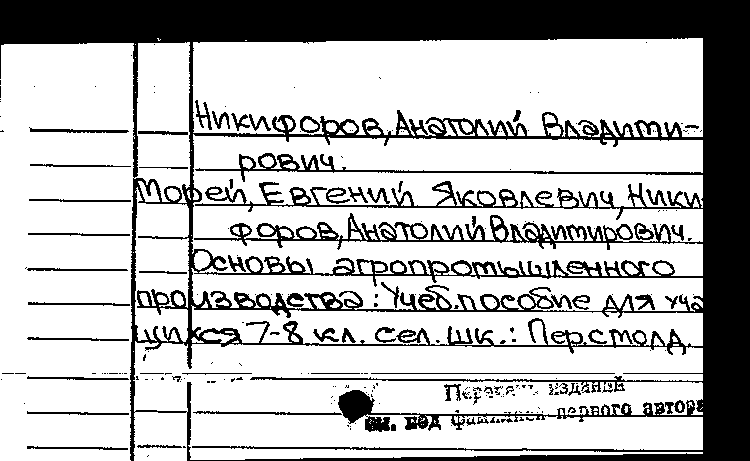 Никифоров, Анатолий Владими-
рович.
Морей, Евгений Яковлевич, Ники
форов, Анатолий Владимирович.
Основы агропромышленного
производства: Учеб. пособие для уча
щихся 7-8 кл. сел. шк.: Пер. с молд.
Перечень изданий
см. под фамилией первого автора